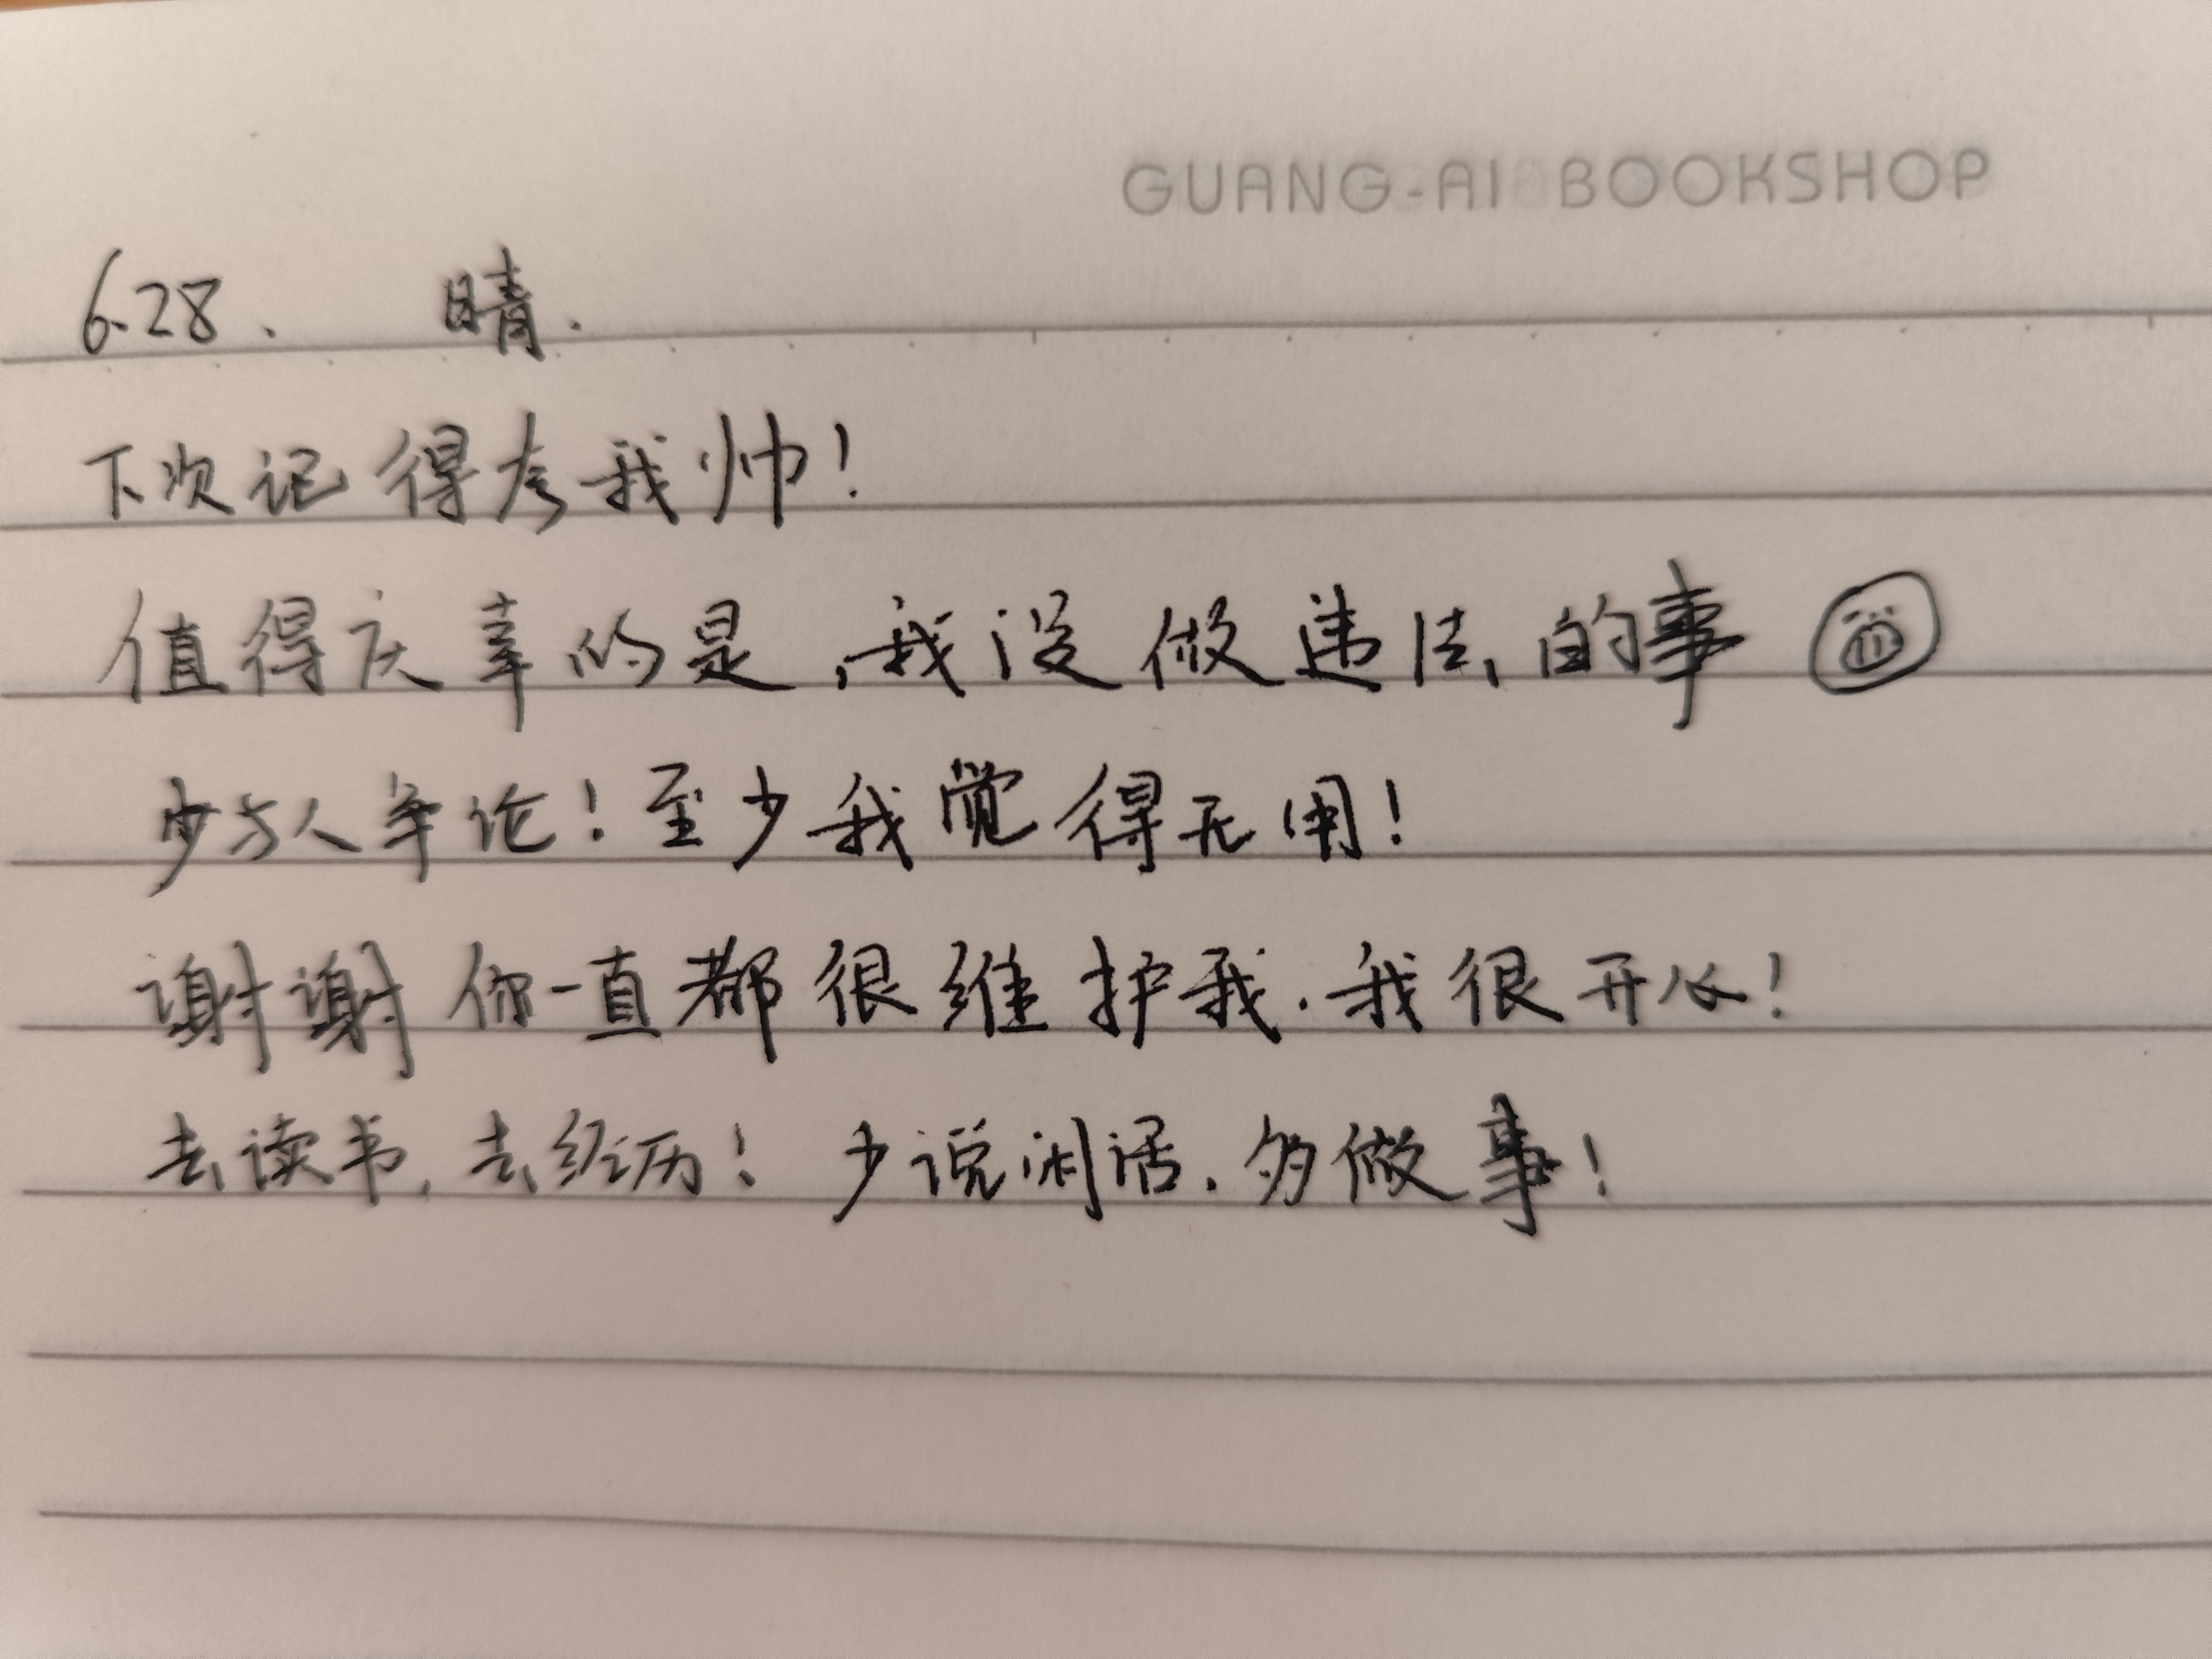 GUANG-AI BOOKSHOP
6.28. 晴.
下次记得夸我帅!
值得庆幸的是,我没做违法的事
少与人争论!至少我觉得无用!
谢谢你一直都很维护我.我很开心!
去读书,去经历!少说闲话.多做事!